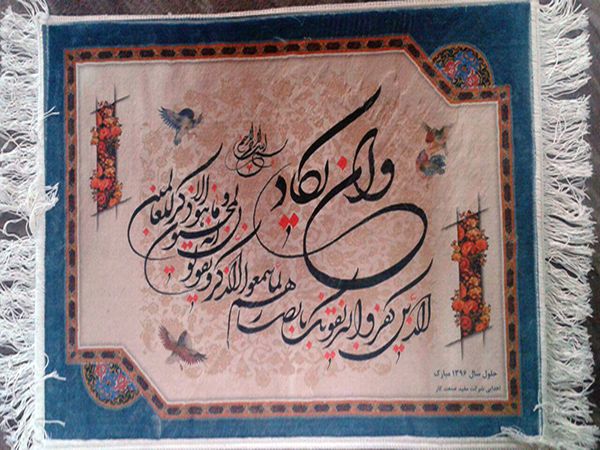 بسم الله الرحمن الرحیم
وان یکاد
الذین کفروا لیزلقونک بابصارهم
لما سمعوا الذکر و یقولون
انه لمجنون
و ما هو الا ذکر للعالمین
حلول سال ۱۳۹۶ مبارک
اهدایی شرکت مفید صنعت کار